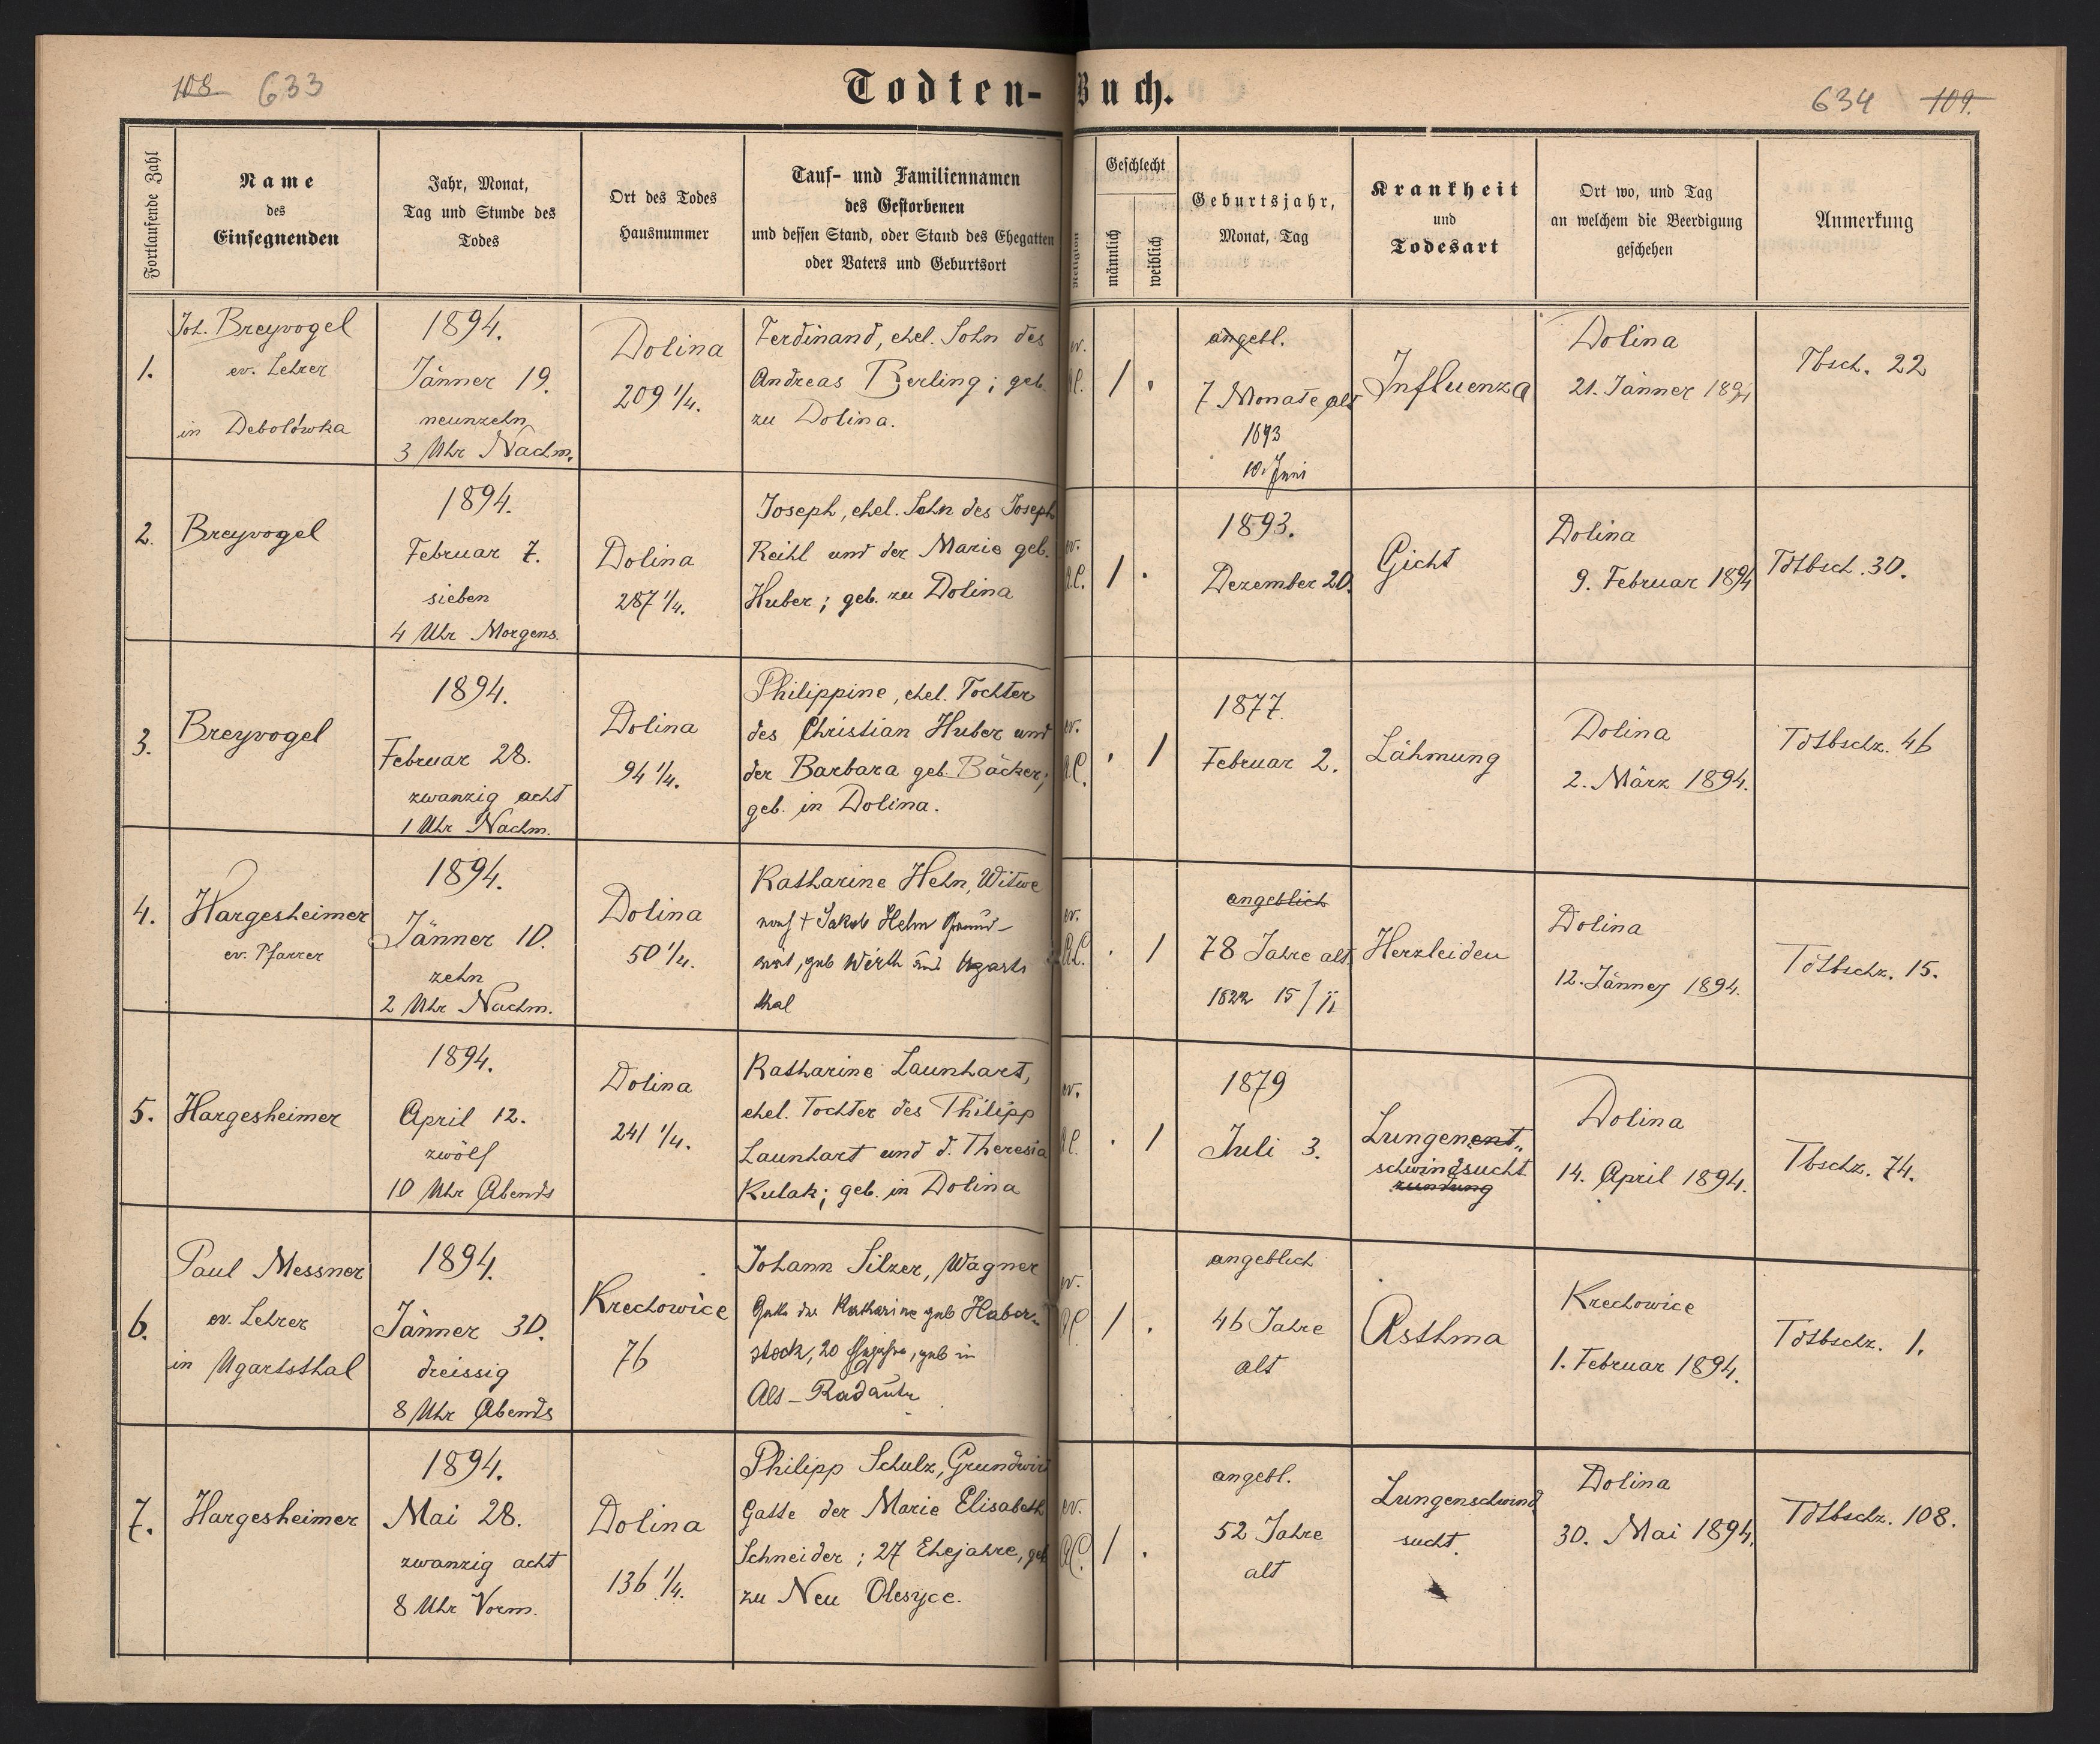 108 633
Todten-Buch.
634 109.
Fortlaufende Zahl
Name
des
Einsegnenden
Jahr, Monat,
Tag und Stunde des
Todes
Ort des Todes
Hausnummer
Tauf- und Familiennamen
des Gestorbenen
und dessen Stand, oder Stand des Ehegatten
oder Vaters und Geburtsort
Religion
Geschlecht
männlich
weiblich
Geburtsjahr,
Monat, Tag
Krankheit
und
Todesart
Ort wo, und Tag
an welchem die Beerdigung
geschehen
Anmerkung
1.
Joh. Breyvogel
ev. Lehrer
in Debolówka
1894.
Jänner 19.
neunzehn
3 Uhr Nachm.
Dolina
209 1/4.
Ferdinand, ehel. Sohn des
Andreas Berling; geb.
zu Dolina.
ev.
A.C.
1 .
angebl.
7 Monate alt
1893
10. Juni
Influenza
Dolina
21. Jänner 1894
Tbsch. 22
2.
Breyvogel
1894.
Februar 7.
sieben
4 Uhr Morgens.
Dolina
287 1/4.
Joseph, ehel. Sohn des Joseph
Reihl und der Marie geb.
Huber; geb. zu Dolina
ev.
A.C.
1 .
1893.
Dezember 20.
Gicht
Dolina
9. Februar 1894
Tdtbsch. 30.
3.
Breyvogel
1894.
Februar 28.
zwanzig acht
1 Uhr Nachm.
Dolina
94 1/4.
Philippine, ehel. Tochter
des Christian Huber und
der Barbara geb. Bäcker;
geb. in Dolina.
ev.
A.C.
. 1
1877.
Februar 2.
Lähmung
Dolina
2. März 1894.
Tdtbschz. 46
4.
Hargesheimer
ev. Pfarrer
1894.
Jänner 10.
zehn
2 Uhr Nachm.
Dolina
50 1/4.
Katharine Hehn, Witwe
nach + Jakob Hehn Grund-
wirt, geb Wirth aus Ugarts
thal
ev.
A.C.
. 1
angeblich
78 Jahre alt.
1822 15/ii
Herzleiden
Dolina
12. Jänner 1894.
Tdtbschz. 15.
5.
Hargesheimer
1894.
April 12.
zwölf
10 Uhr Abends
Dolina
241 1/4.
Katharine Launhart,
ehel. Tochter des Philipp
Launhart und d. Theresia
Kulak; geb. in Dolina
ev.
A.C.
. 1
1879
Juli 3.
Lungenent„
schwindsucht
zündung
Dolina
14. April 1894.
Tbschz. 74.
6.
Paul Messner
ev. Lehrer
in Ugartsthal
1894.
Jänner 30.
dreissig
8 Uhr Abends
Krechowice
76
Johann Silzer, Wagner
Gatte der Katharine geb Haber„
stock, 20 Ehejahre, geb in
Alt-Radautz
ev.
AC
1 .
angeblich
46 Jahre
alt
Asthma
Krechowice
1. Februar 1894.
Tdtbschz. 1.
7.
Hargesheimer
1894.
Mai 28.
zwanzig acht
8 Uhr Vorm.
Dolina
136 1/4.
Philipp Schulz, Grundwirt
Gatte der Marie Elisabeth
Schneider; 27 Ehejahre, geb
zu Neu Olesyce.
ev.
AC.
1 .
angebl.
52 Jahre
alt
Lungenschwind
sucht.
Dolina
30. Mai 1894.
Tdtbschz. 108.